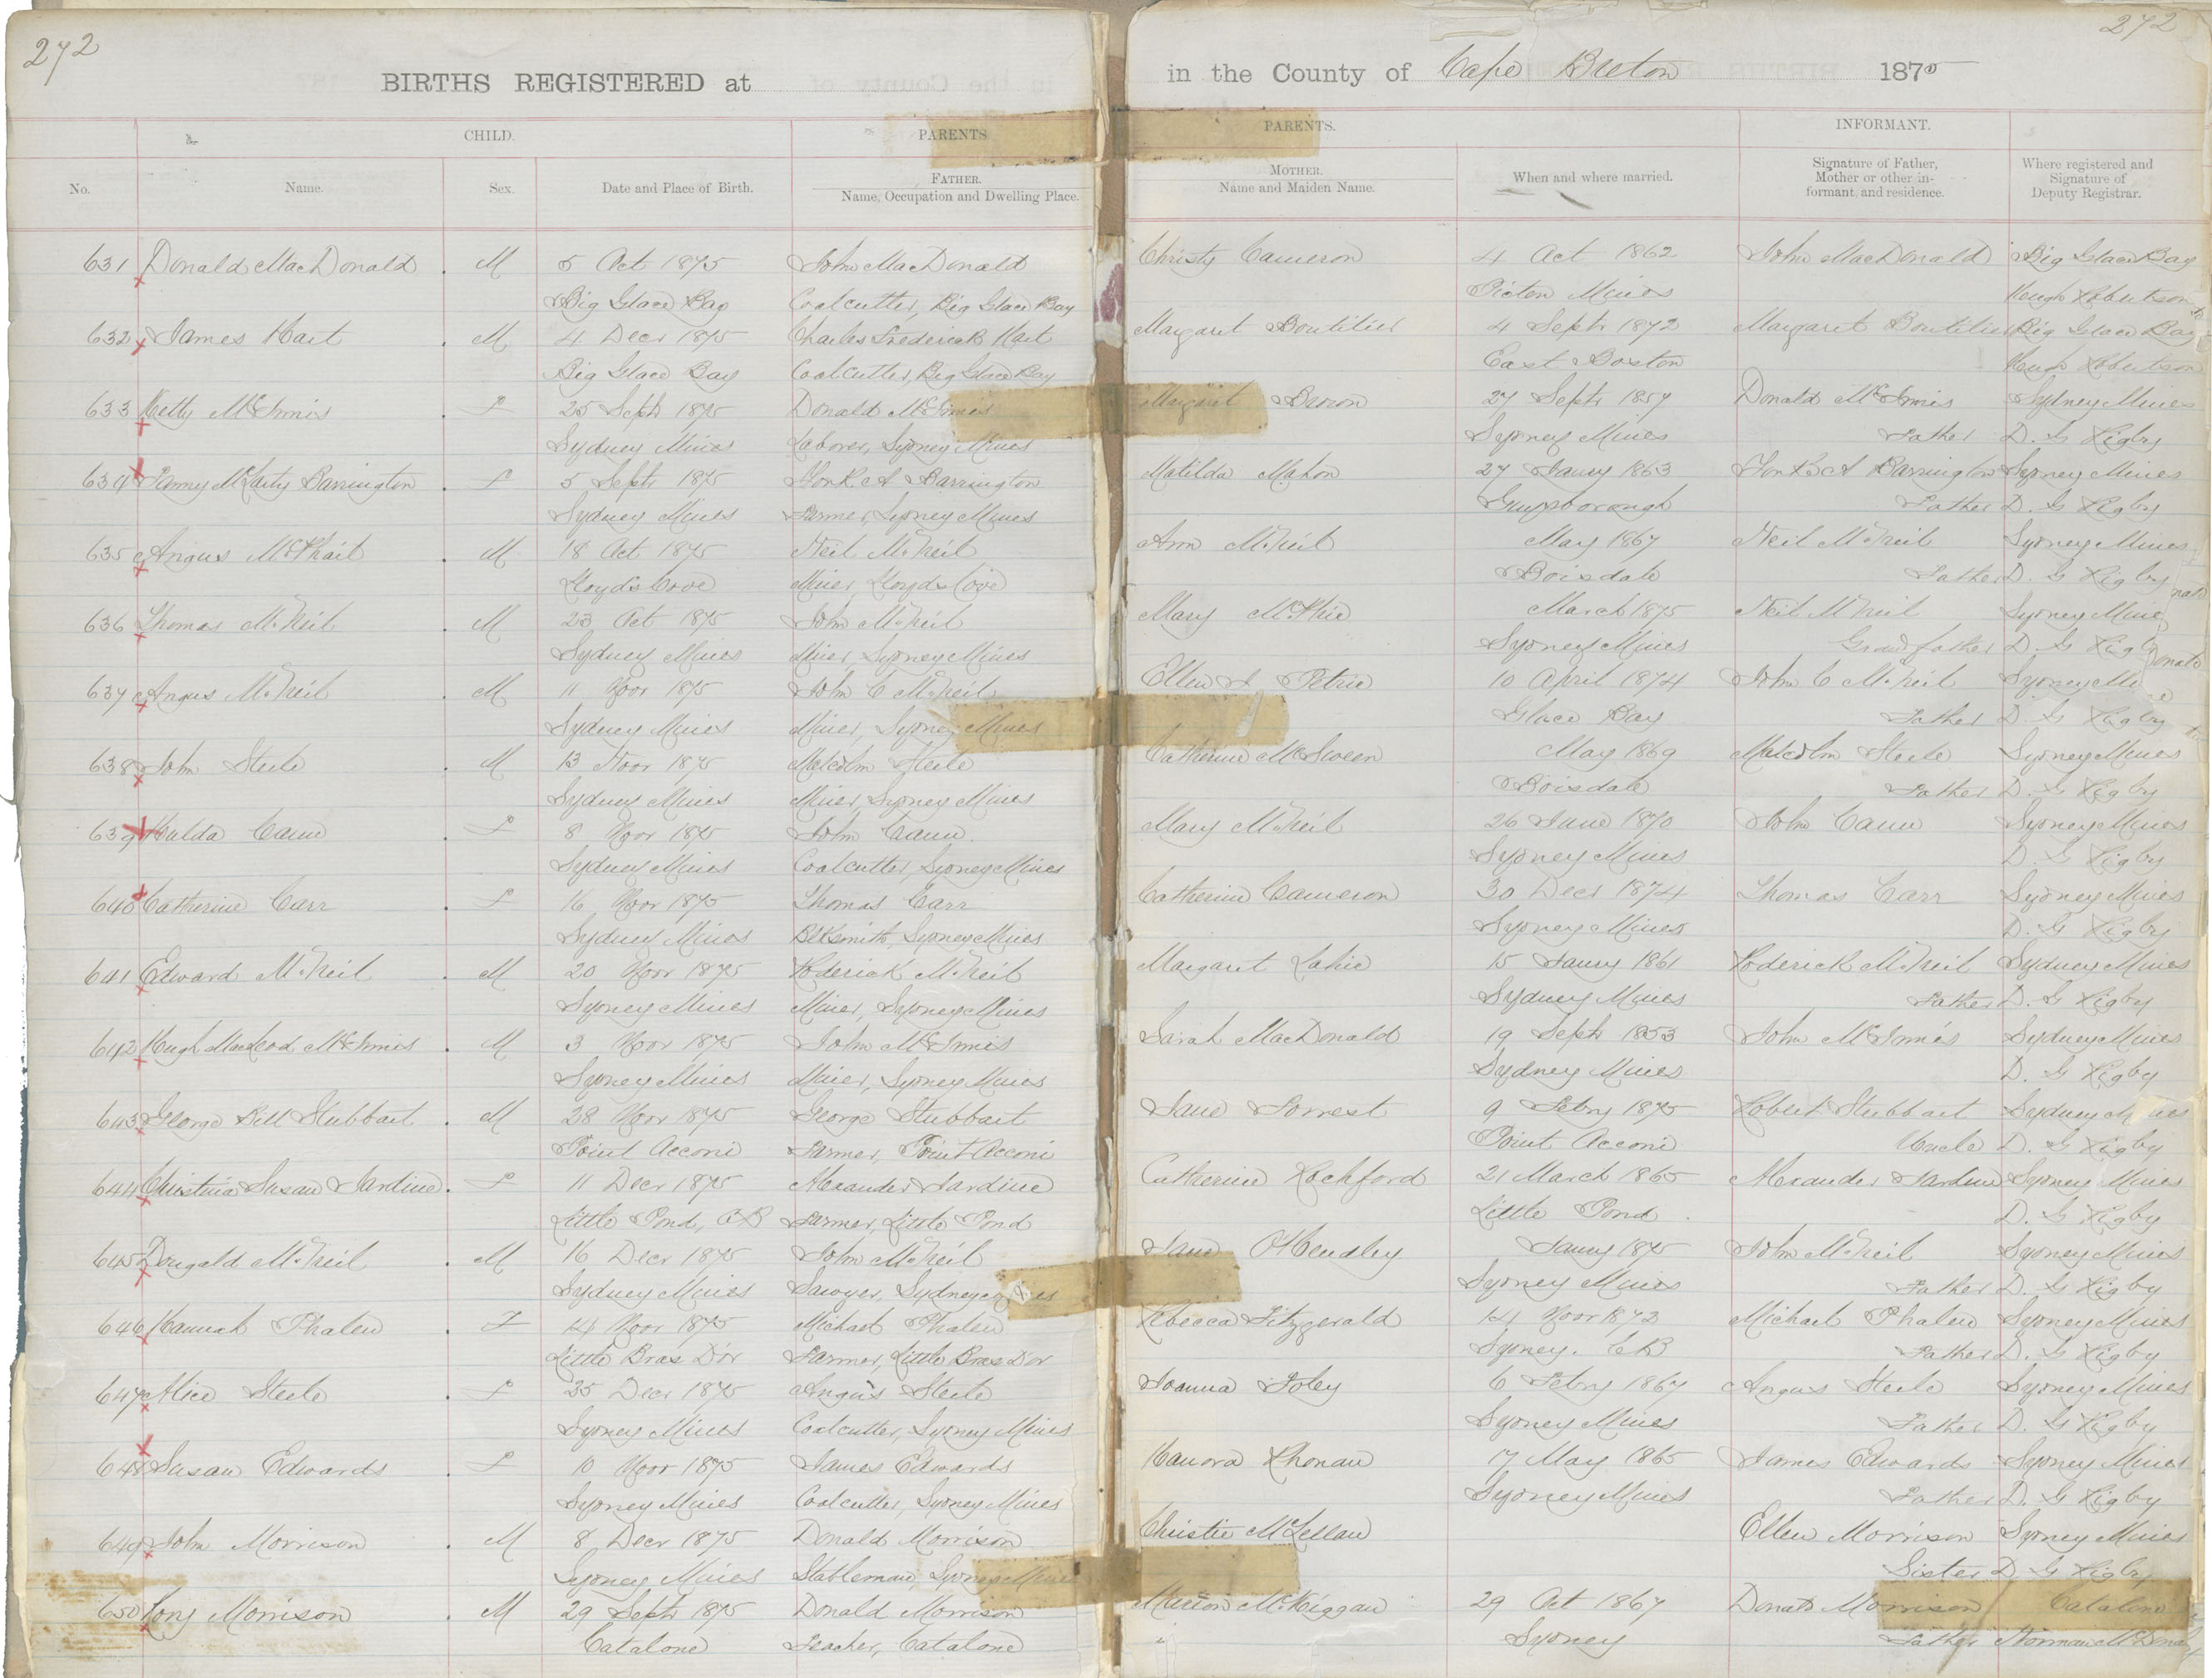 272
272
BIRTHS REGISTERED at
in the County of Cape Breton 1875
CHILD.
PARENTS
PARENTS.
INFORMANT.
No.
Name.
Sex.
Date and Place of Birth.
FATHER.
Name, Occupation and Dwelling Place.
MOTHER.
Name and Maiden Name.
When and where married.
Signature of Father,
Mother or other in-
formant, and residence.
Where registered and
Signature of
Deputy Registrar.
631 Donald MacDonald M 5 Oct 1875 John MacDonald Christy Cameron 4 Oct 1862 John MacDonald Big Glace Bay
Big Glace Bay Coalcutter, Big Glace Bay Pictou Mines Hugh Robertson
632 James Hart M 4 Decr 1875 Charles Frederick Hart Margaret Boutilier 4 Septr 1872 Margaret Boutilier Big Glace Bay
Big Glace Bay Coalcutter, Big Glace Bay East Boston Hugh Robertson
633 Ketty McInnis F 25 Septr 1875 Donald McInnis Margaret Brown 27 Septr 1857 Donald McInnis Sydney Mines
Sydney Mines Laborer, Sydney Mines Sydney Mines Father D. G Rigby
634 Fanny McLarty Barrington F 5 Septr 1875 Yorke A Barrington Matilda Mahon 27 Jany 1863 Yorke A Barrington Sydney Mines
Sydney Mines Farmer, Sydney Mines Guysborough Father D. G Rigby
635 Angus McPhail M 18 Oct 1875 Neil McNeil Ann McNeil May 1867 Neil McNeil Sydney Mines
Lloyd's Cove Miner, Lloyds Cove Boisdale Father D. G Rigby
636 Thomas McNeil M 23 Oct 1875 John McNeil Mary McPhie March 1875 Neil McNeil Sydney Mines
Sydney Mines Miner, Sydney Mines Sydney Mines Grandfather D. G Rigby
637 Angus McNeil M 11 Novr 1875 John C McNeil Ellen A Petrie 10 April 1874 John C McNeil Sydney
Sydney Mines Miner, Sydney Mines Glace Bay Father D. G Rigby
638 John Steele M 13 Novr 1875 Malcolm Steele Catherine McSween May 1869 Malcolm Steele Sydney Mines
Sydney Mines Miner, Sydney Mines Boisdale Father D. G Rigby
639 Hulda Cann F 8 Novr 1875 John Cann Mary McNeil 26 June 1870 John Cann Sydney Mines
Sydney Mines Coalcutter, Sydney Mines Sydney Mines D. G Rigby
640 Catherine Carr F 16 Novr 1875 Thomas Carr Catherine Cameron 30 Decr 1874 Thomas Carr Sydney Mines
Sydney Mines Blksmith, Sydney Mines Sydney Mines D. G Rigby
641 Edward McNeil M 20 Novr 1875 Roderick McNeil Margaret Lahie 15 Jany 1861 Roderick McNeil Sydney Mines
Sydney Mines Miner, Sydney Mines Sydney Mines Father D. G Rigby
642 Hugh MacLeod McInnis M 3 Novr 1875 John McInnis Sarah MacDonald 19 Septr 1853 John McInnis Sydney Mines
Sydney Mines Miner, Sydney Mines Sydney Mines D. G Rigby
643 George Bill Stubbart M 28 Novr 1875 George Stubbart Jane Forrest 9 Febry 1875 Robert Stubbart Sydney Mines
Point Acconi Farmer, Point Acconi Point Acconi Uncle D. G Rigby
644 Christina Susan Jardine F 11 Decr 1875 Alexander Jardine Catherine Rochford 21 March 1865 Alexander Jardine Sydney Mines
Little Pond, CB Farmer, Little Pond Little Pond D. G Rigby
645 Dougald McNeil M 16 Decr 1875 John McNeil Jane OHendley Jany 1875 John McNeil Sydney Mines
Sydney Mines Sawyer, Sydney Mines Sydney Mines Father D. G Rigby
646 Hannah Phalen F 14 Novr 1875 Michael Phalen Rebecca Fitzgerald 14 Novr 1873 Michael Phalen Sydney Mines
Little Bras D'or Farmer, Little Bras Dor Sydney. CB Father D. G Rigby
647 Alice Steele F 25 Decr 1875 Angus Steele Joanna Foley 6 Febry 1867 Angus Steele Sydney Mines
Sydney Mines Coalcutter, Sydney Mines Sydney Mines Father D. G Rigby
648 Susan Edwards F 10 Novr 1875 James Edwards Hanora Rhonan 17 May 1865 James Edwards Sydney Mines
Sydney Mines Coalcutter, Sydney Mines Sydney Mines Father D. G Rigby
649 John Morrison M 8 Decr 1875 Donald Morrison Christie McLellan Ellen Morrison Sydney Mines
Sydney Mines Stableman, Sydney Mines Sister D. G Rigby
650 Rory Morrison M 29 Septr 1875 Donald Morrison Marion McKiggan 29 Oct 1867 Donald Morrison Catalone
Catalone Teacher, Catalone Sydney Father Norman